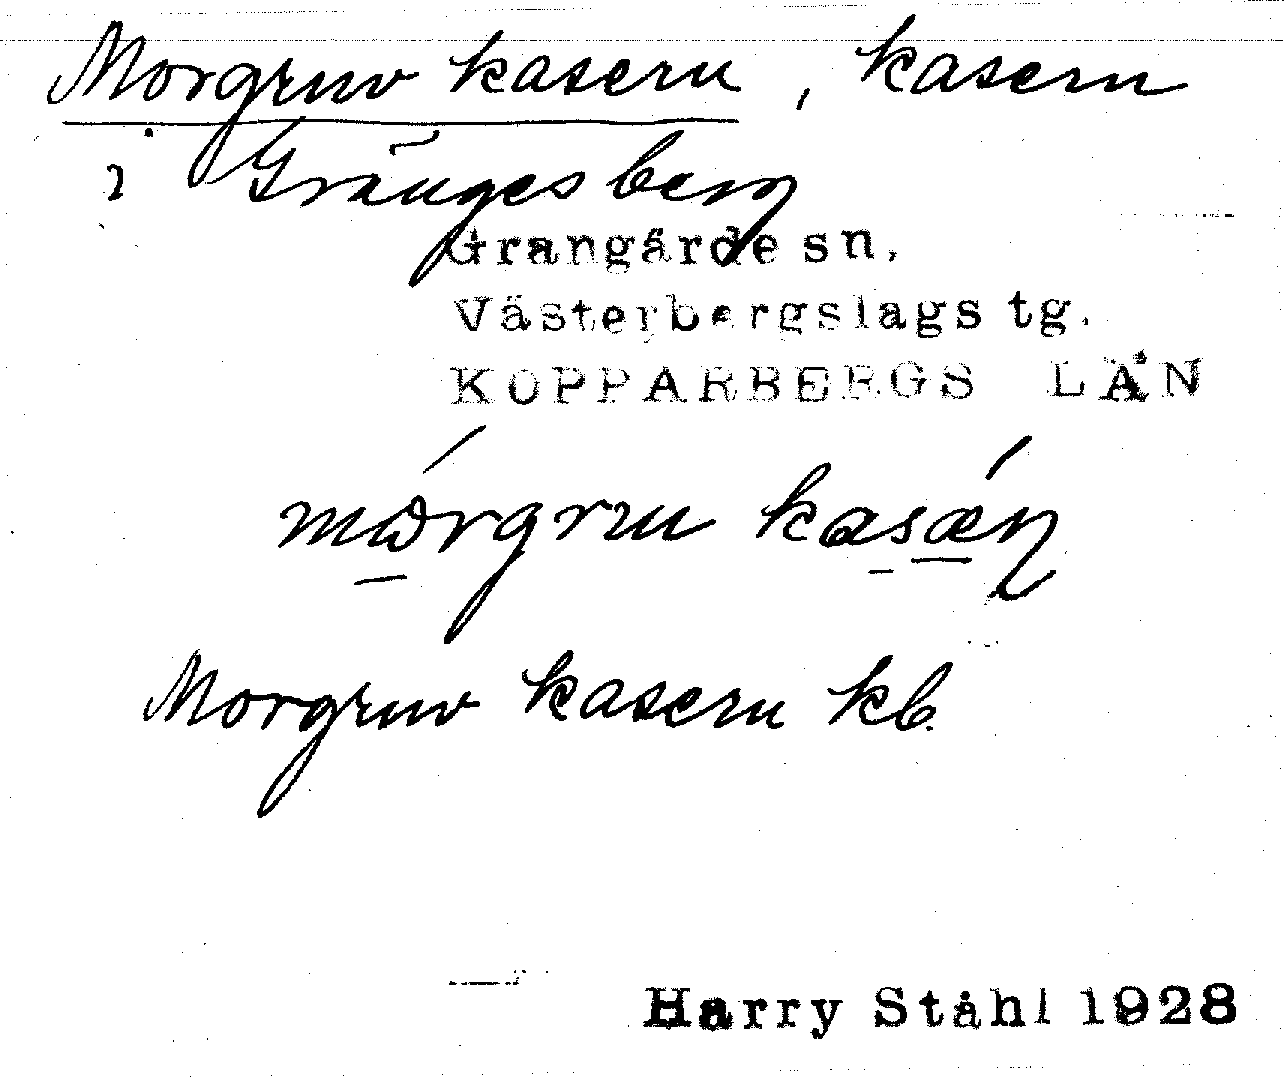 Morgruv kasern, kasern
i Grängesberg
Grangärde sn.
Västerbergslags tg.
KOPPARBERGS LÄN
mωrgruu kasǽn
Morgruv kasern kb.
Harry Ståhl 1928